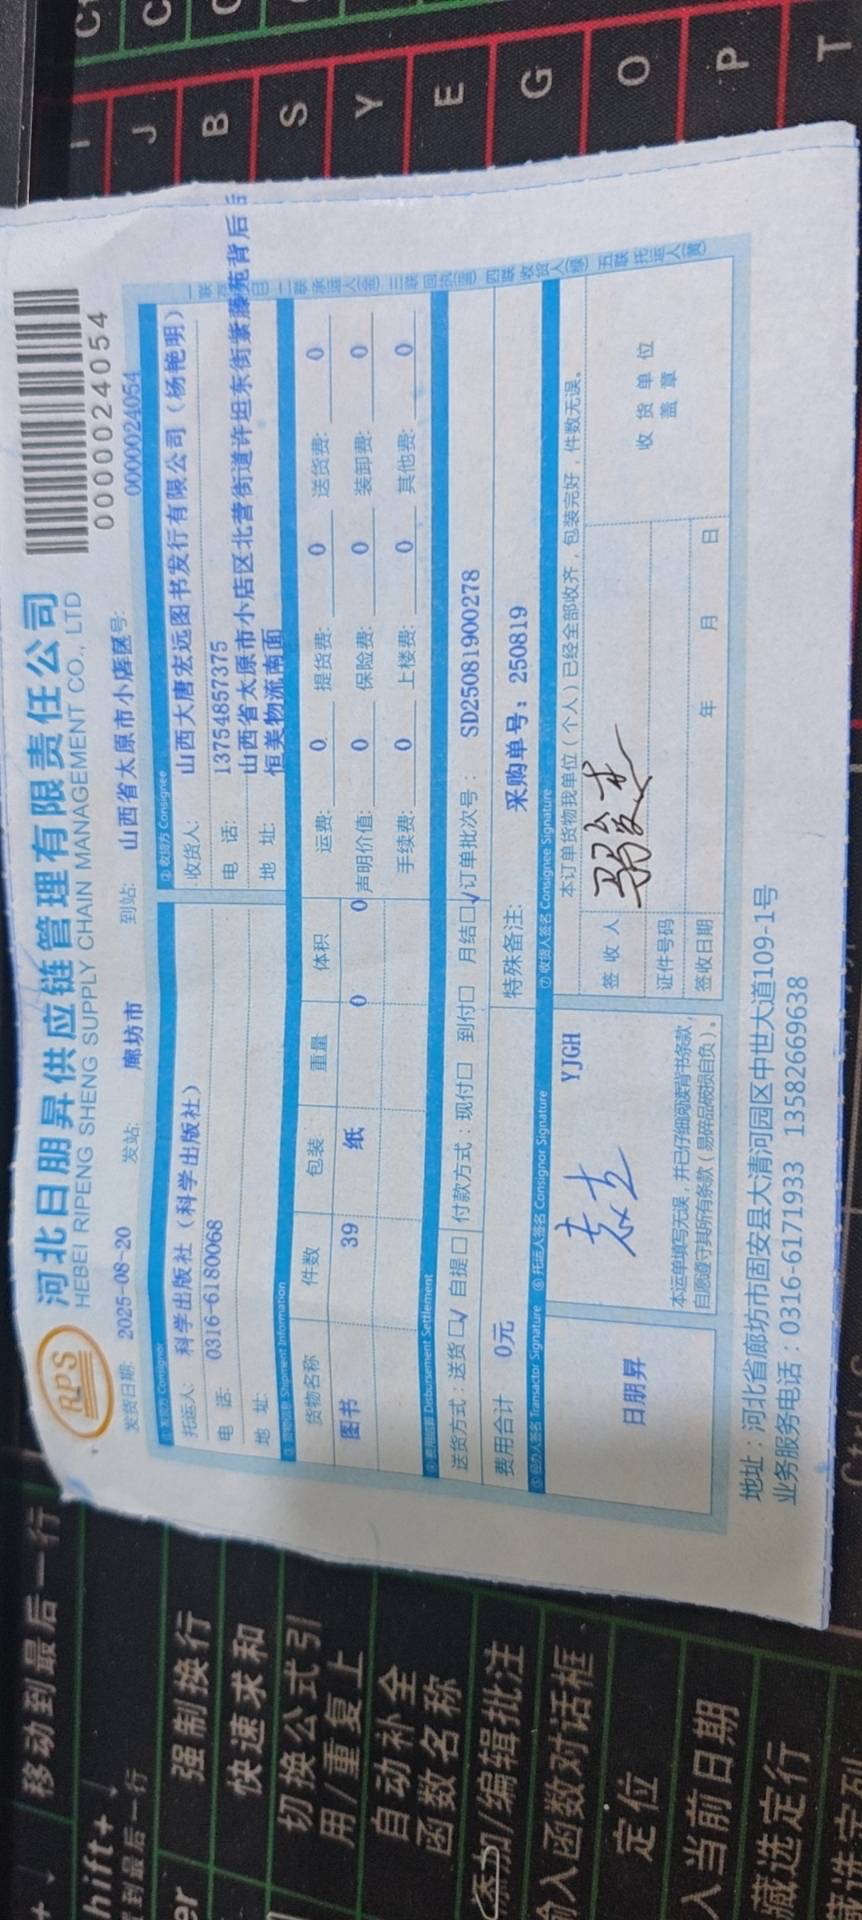 RPS
河北日朋昇供应链管理有限责任公司
HEBEI RIPENG SHENG SUPPLY CHAIN MANAGEMENT CO., LTD
0000024054
发货日期: 2025-08-20 发站: 廊坊市 到站: 山西省太原市小店区 号: 0000024054
①发货方 Consignor
托运人: 科学出版社（科学出版社）
电 话: 0316-6180068
地 址:
②收货方 Consignee
收货人: 山西大唐宏远图书发行有限公司（杨艳明）
电 话: 13754857375
地 址: 山西省太原市小店区北营街道许坦东街紫藤苑背后
恒美物流南面
③货物信息 Shipment Information
货物名称 件数 包装 重量 体积
图书 39 纸 0 0
运费: 0 提货费: 0 送货费: 0
声明价值: 0 保险费: 0 装卸费: 0
手续费: 0 上楼费: 0 其他费: 0
④费用结算 Disbursement Settlement
送货方式：送货☑ 自提☐ 付款方式：现付☐ 到付☐ 月结☑ 订单批次号： SD25081900278
费用合计 0元 特殊备注: 采购单号：250819
⑤经办人签名 Transactor Signature
日朋昇
⑥托运人签名 Consignor Signature
YJGH
本运单填写无误，并已仔细阅读背书条款，
自愿遵守其所有条款（易碎品破损自负）。
⑦收货人签名 Consignee Signature
本订单货物我单位（个人）已经全部收齐，包装完好，件数无误。
签 收 人
证件号码
签收日期 年 月 日
收 货 单 位
盖 章
地址：河北省廊坊市固安县大清河园区中世大道109-1号
业务服务电话：0316-6171933 13582669638
I
J
B
S
Y
E
G
O
P
T
移动到最后一行
强制换行
快速求和
切换公式引
用/重复上
自动补全
函数名称
添加/编辑批注
输入函数对话框
定位
入当前日期
藏选定行